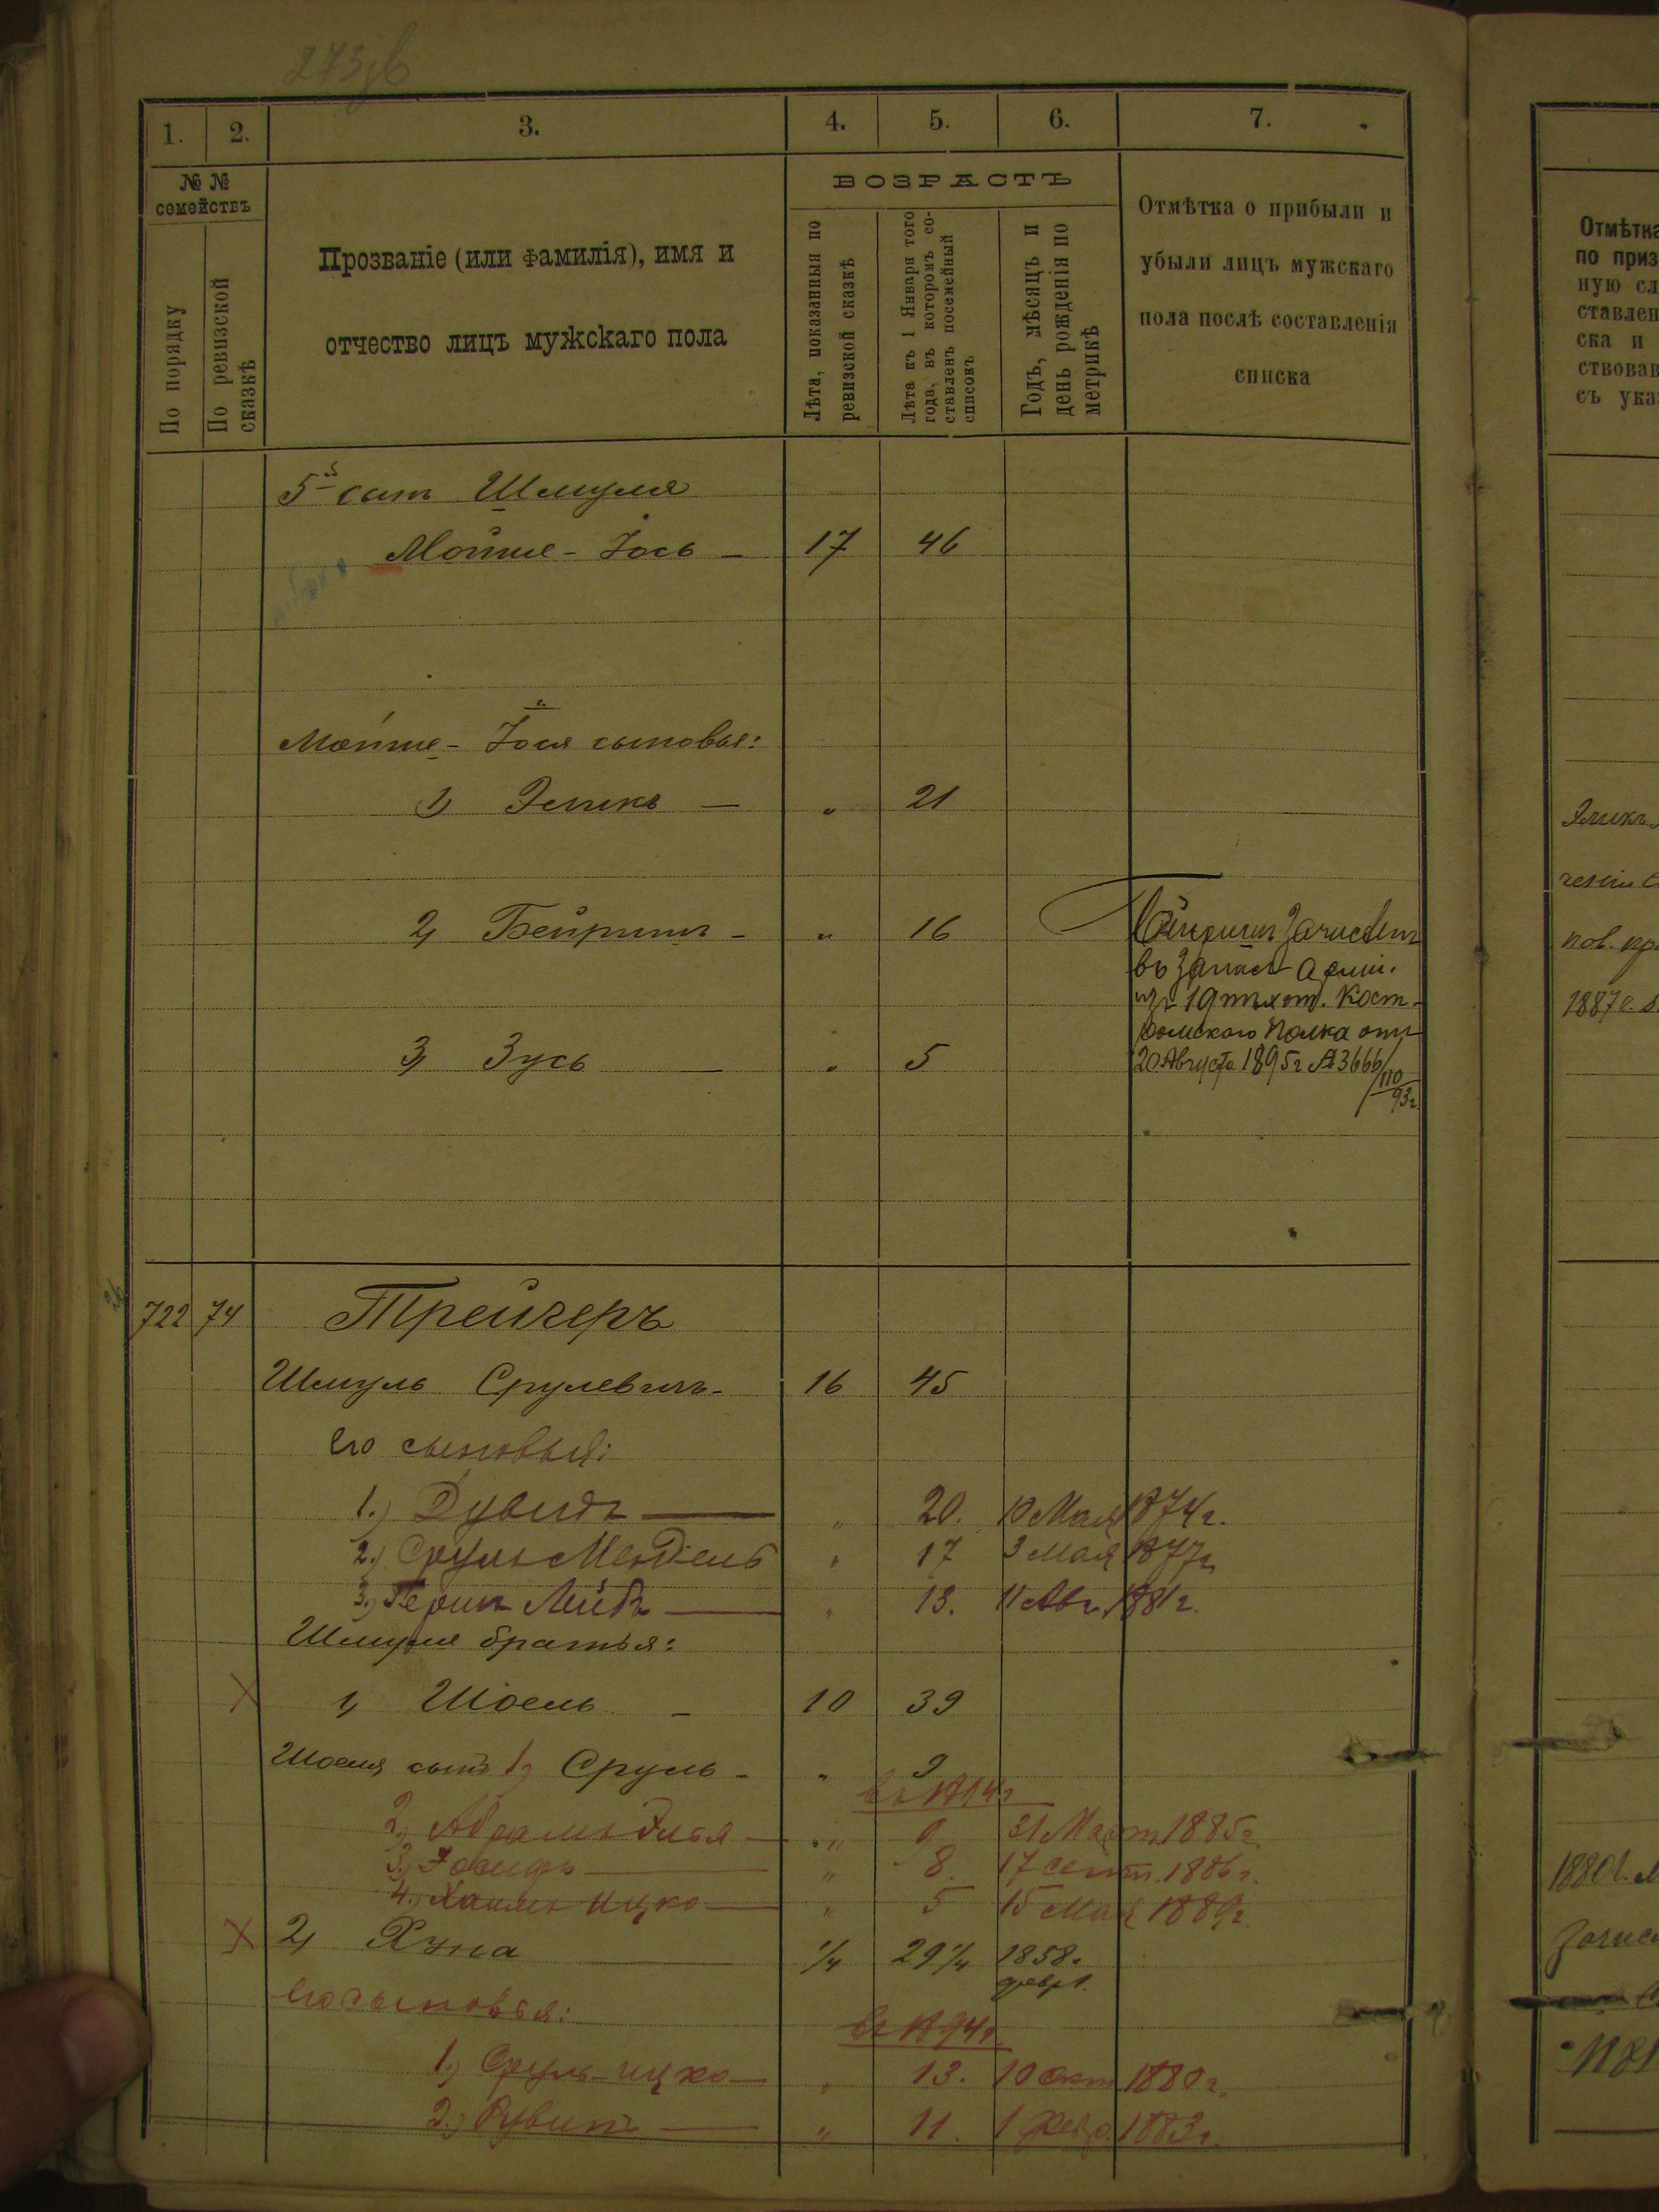 273
1. 2. 3. 4. 5. 6. 7.
№ №
семействъ
По порядку
По ревизской
сказкѣ
Прозваніе (или фамилія), имя и
отчество лицъ мужскаго пола
ВОЗРАСТЪ
Лѣта, показанныя по
ревизской сказкѣ
Лѣта къ 1 Января того
года, въ которомъ со-
ставленъ посемейный
списокъ
Годъ, мѣсяцъ и
день рожденія по
метрикѣ
Отмѣтка о прибыли и
убыли лицъ мужскаго
пола послѣ составленія
списка
5й сынъ Шмуля
Мошие-Іось — 17 46
Мошие-Іося сыновья:
1) Эликъ — „ 21
2) Бейришъ — „ 16
3) Зусь — „ 5
Бейришъ Зачисленъ
въ Запасъ Арміи.
изъ 19 пѣхот. Кост-
ромского Полка отъ
20 Августа 1895г № 3666
110
93г.
722 74 Трейгеръ
Шмуль Срулевичъ- 16 45
Его сыновья:
1.) Дувидъ — „ 20. 10 Мая 1874г.
2.) Сруль Мендель „ 17 3 Мая 1877г
3.) Гершъ Лейбъ — „ 13. 11 Авг. 1881г.
Шмуля братья:
1) Шоель — 10 39
Шоеля сынъ 1) Сруль - „ 9
въ 1894г
2.) Абрамъ Эльея — „ 9 31 Март 1885г.
3.) Іосифъ — „ 8. 17 сент. 1886г.
4.) Хаимъ Ицко — „ 5 15 Мая 1889г.
2) Хуна — 1/4 29 1/4 1858.
февр.
Его сыновья:
въ 1894г.
1.) Сруль-Ицко — „ 13. 10 окт 1880г.
2.) Рувинъ — „ 11. 1 Февр. 1883г.
Отмѣтка
по приз
ную сл
ставлен
ска и
ствовав
съ ука
Эликъ
пов. пр
1887г.
1880г.
Зачис